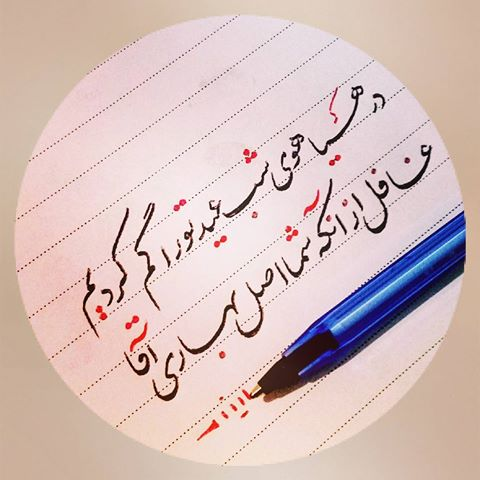 در هیاهوی شب عید تو را گم کردیم
غافل از آنکه شما اصل بهاری آقا